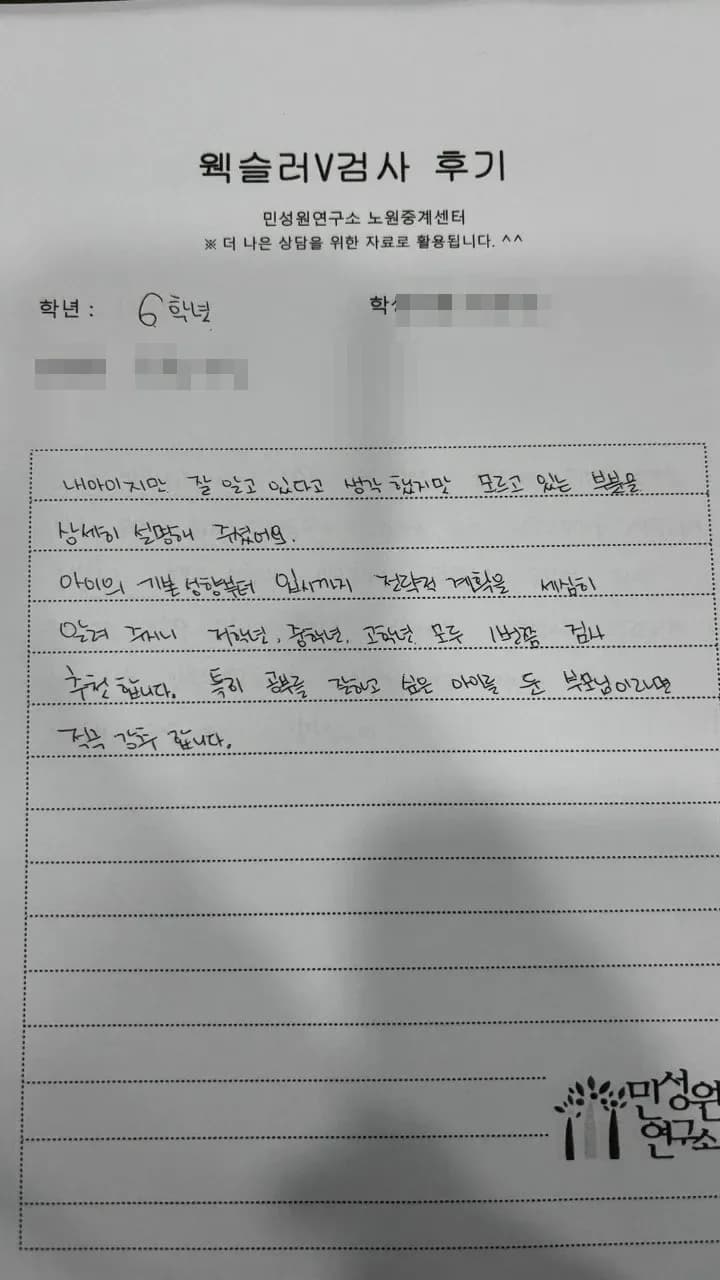 웩슬러V검사 후기
민성원연구소 노원중계센터
※ 더 나은 상담을 위한 자료로 활용됩니다. ^^
학년 : 6학년 학
내아이지만 잘 알고 있다고 생각했지만 모르고 있는 부분을
상세히 설명해 주셨어요.
아이의 기본성향부터 입시까지 전략적 계획을 세심히
알려 주시니 저학년, 중학년, 고학년 모두 1번쯤 검사
추천합니다. 특히 공부를 잘하고 싶은 아이를 둔 부모님이라면
적극 강추 합니다.
민성원
연구소